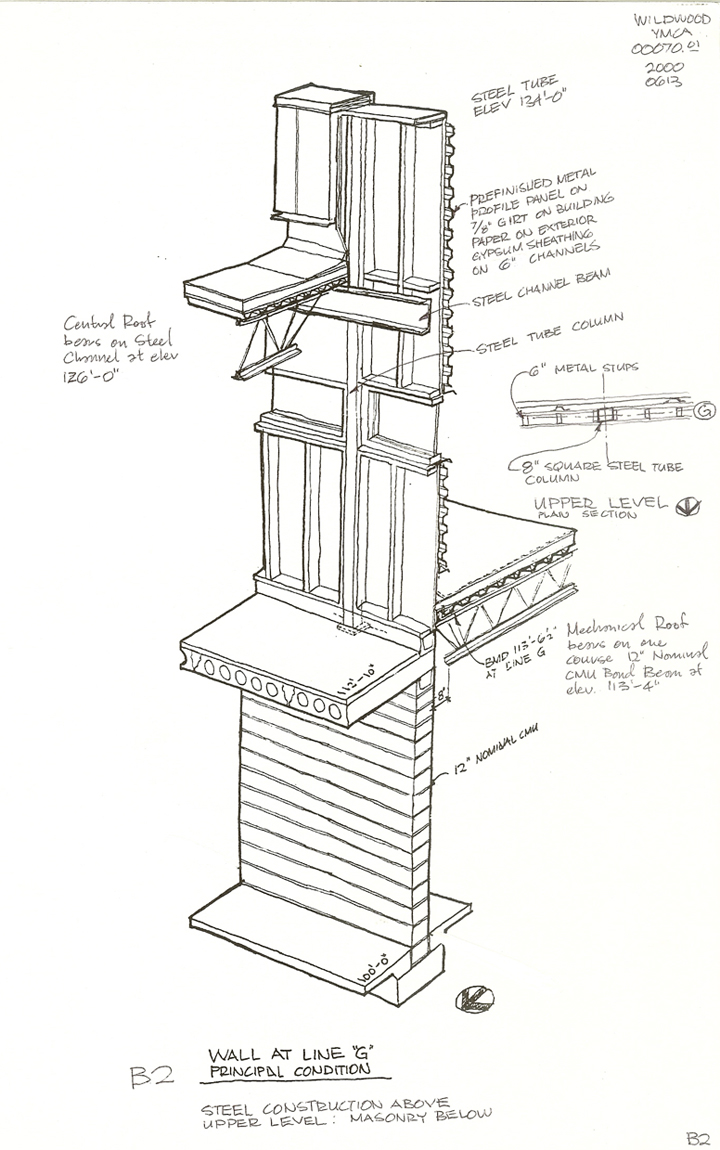 WILDWOOD
YMCA
00070.01
2000
0613
STEEL TUBE
ELEV 134'-0"
PREFINISHED METAL
PROFILE PANEL ON
7/8" GIRT ON BUILDING
PAPER ON EXTERIOR
GYPSUM SHEATHING
ON 6" CHANNELS
STEEL CHANNEL BEAM
STEEL TUBE COLUMN
Central Roof
bears on Steel
Channel at elev
126'-0"
6" METAL STUDS
G
8" SQUARE STEEL TUBE
COLUMN
UPPER LEVEL
PLAN SECTION
Mechanical Roof
bears on one
course 12" Nominal
CMU Bond Beam at
elev. 113'-4"
BMD 113'-6½"
AT LINE G
112'-10"
8"
12" NOMINAL CMU
100'-0"
B2
WALL AT LINE "G"
PRINCIPAL CONDITION
STEEL CONSTRUCTION ABOVE
UPPER LEVEL: MASONRY BELOW
B2